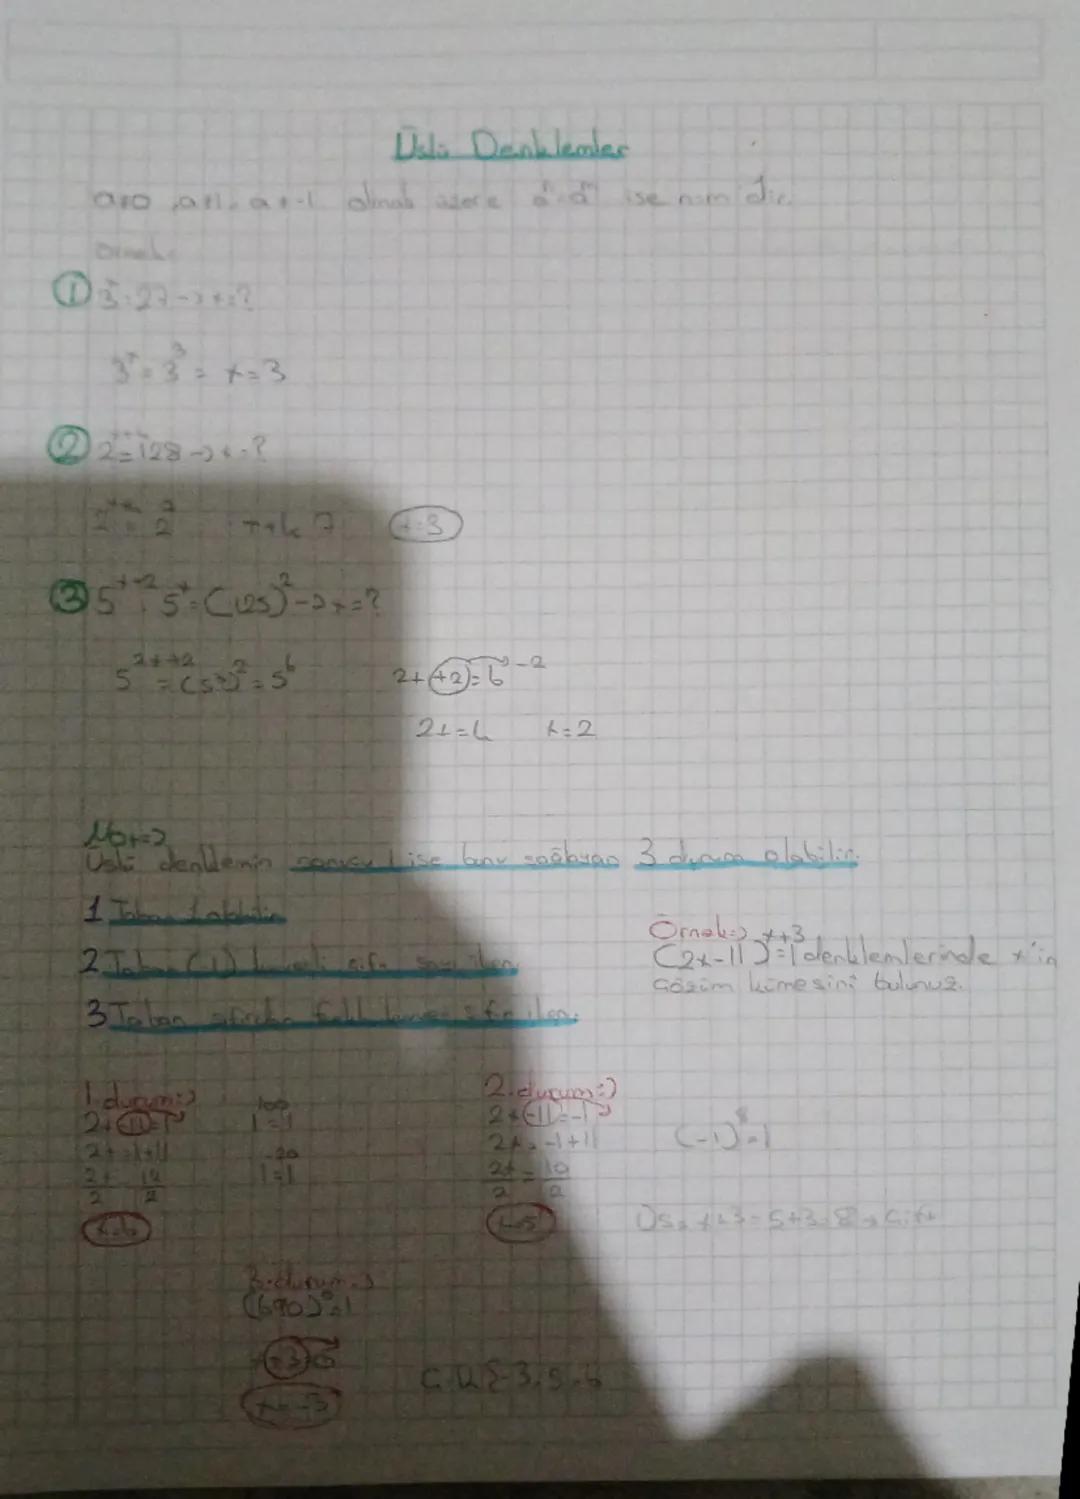 Üslü Denklemler
a≠0, a≠1, a≠-1 olmak üzere aⁿ=aᵐ ise n=m dir.
Örnek:
① 3ˣ=27 -> x=?
3ˣ=3³= x=3
② 2ˣ⁺⁴=128 -> x=?
2ˣ⁺⁴=2⁷ x+4=7 x=3
③ 5ˣ⁺².5ˣ=(125)²->x=?
5²ˣ⁺²=(5³)²=5⁶ 2x+2=6 -2
2x=4 x=2
Not=>
Üslü denklemin sonucu 1 ise bunu sağlayan 3 durum olabilir.
1 Taban 1 olabilir
2 Taban (-1) kuvveti çift sayı iken
3 Taban sıfırdan farklı kuvvet sıfır iken.
Örnek=>
(2x-11)ˣ⁺³=1 denklemlerinde x'in
çözüm kümesini bulunuz.
1.durum:)
2x-11=1 1¹⁰⁰=1
2x=1+11 1⁻²⁰=1
2x/2 12/2
x=6
2.durum:)
2x-11=-1
2x=-1+11 (-1)⁸=1
2x/2=10/2
x=5 Üs= x+3=5+3=8 -> Çift
3.durum:)
(690)⁰=1
x+3=0
x=-3 Ç.K{-3,5,6